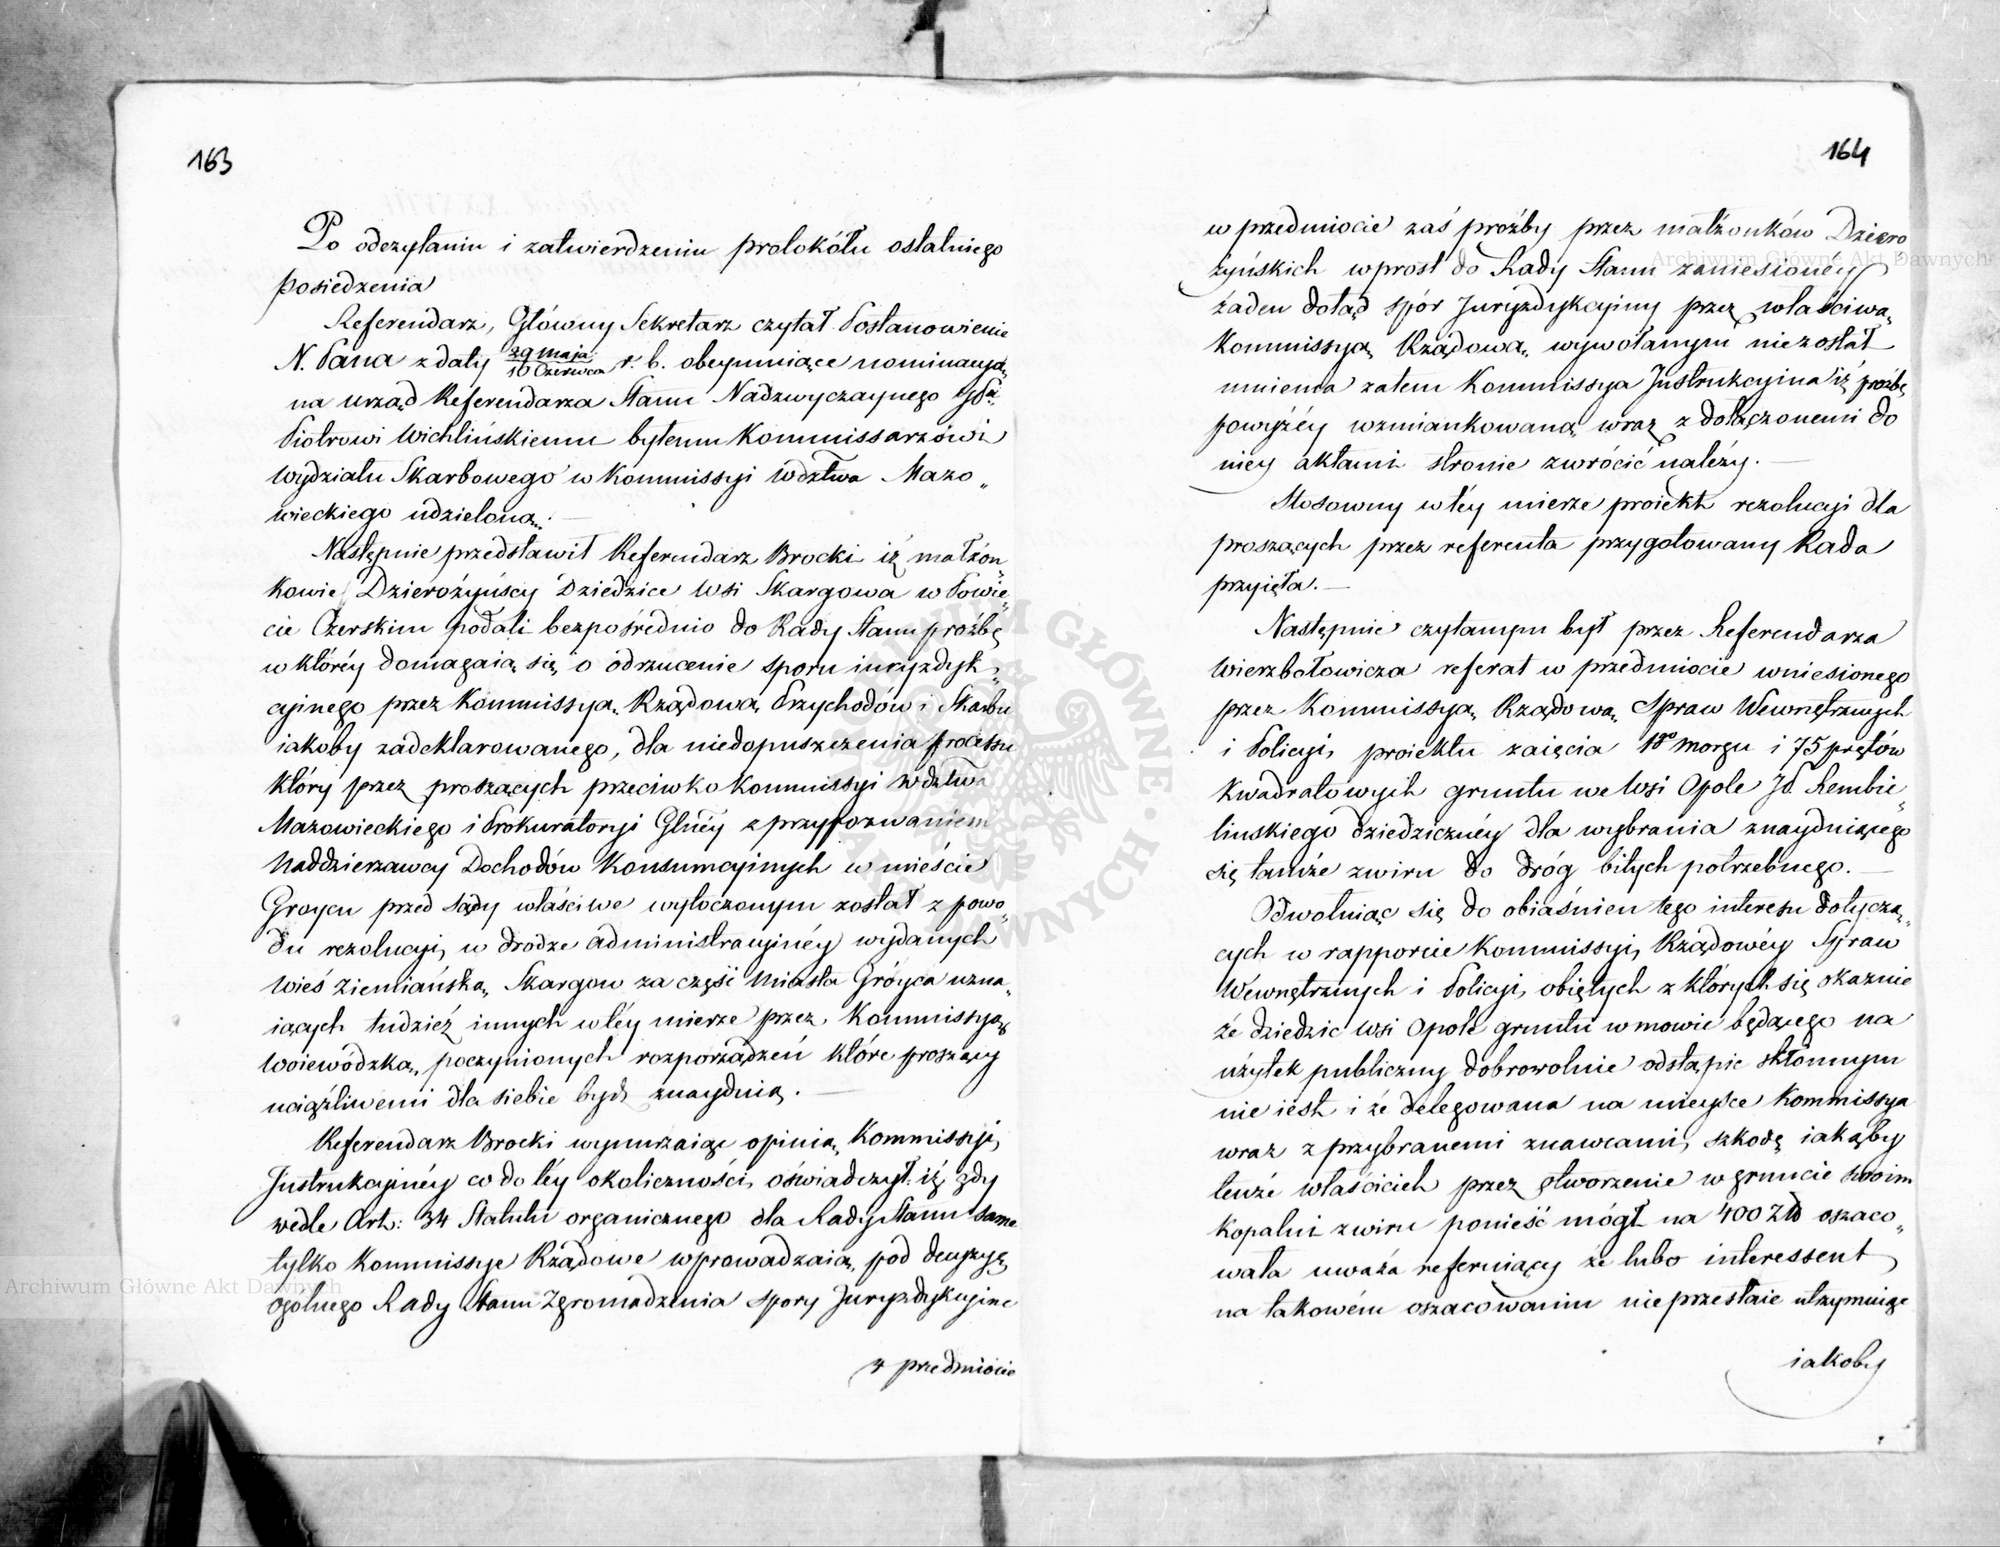 163
Po odczytaniu i zatwierdzeniu protokółu ostatniego
posiedzenia
Referendarz, Główny Sekretarz czytał Postanowienie
N. Pana z daty 29 Maja / 10 Czerwca r. b. obeymuiące nominacyą
na urząd Referendarza Stanu Nadzwyczaynego JPu.
Piotrowi Wichlińskiemu byłemu Kommissarzówi
Wydziału Skarbowego w Kommissyi Wdztwa Mazo„
wieckiego udzieloną. —
Następnie przedstawił Referendarz Brocki iż małżon„
kowie Dzierożyńscy Dziedzice Wsi Skargowa w Powie„
cie Czerskim podali bezpośrednio do Rady Stanu proźbę
w któréy domagaią się o odrzucenie sporu iuryzdyk„
cyinego przez Kommissyą Rządową Przychodów i Skarbu
iakoby zadeklarowanego, dla niedopuszczenia processu
który przez proszących przeciwko Kommissyi Wdztwa
Mazowieckiego i Prokuratoryi Głnéy z przypozwaniem
Naddzierzawcy Dochodów Konsumcyinych w mieście
Groycu przed sądy właściwe wytoczonym został z powo„
du rezolucyi w drodze administracyinéy wydanych
Wieś ziemiańską Skargow za część Miasta Gróyca uzna„
iących tudzież innych w téy mierze przez Kommissyą
Woiewódzką poczynionych rozporządzeń które proszący
uciążliwemi dla siebie bydź znayduią. —
Referendarz Brocki wynurzaiąc opinią Kommissyi
Instrukcyinéy co do téy okoliczności, oświadczył iż gdy
wedle Art: 34 Statutu organicznego dla Rady Stanu same
tylko Kommissye Rządowe wprowadzaią pod decyzyę
ogolnego Rady Stanu Zgromadzenia spory Juryzdykcyine
w przedmiocie
164
w przedmiocie zaś proźby przez małżonków Dziero
żyńskich wprost do Rady Stanu zaniesioney
żaden dotąd spór Juryzdykcyiny przez właściwą
Kommissyą Rządową wywołanym niezostał
mniema zatem Kommissya Instrukcyina iż proźbę
powyżéy wzmiankowaną wraz z dołączonemi do
niey aktami stronie zwrócić należy. —
Stosowny w téy mierze proiekt rezolucyi dla
proszących przez referenta przygotowany Rada
przyięła. —
Następnie czytanym był przez Referendarza
Wierzbołowicza referat w przedmiocie wniesionego
przez Kommissyą Rządową Spraw Wewnętrznych
i Policyi, proiektu zaięcia 18 morgu i 75 prętów
kwadratowych gruntu we Wsi Opole Jd. Rembie„
linskiego dziedzicznéy dla wybrania znayduiącego
się tamże zwiru do dróg bitych potrzebnego. —
Odwołuiąc się do obiaśnien tego interesu dotyczą„
cych w rapporcie Kommissyi Rządowéy Spraw
Wewnętrznych i Policyi obiętych z których się okazuie
że dziedzic Wsi Opole gruntu w mowie będącego na
użytek publiczny dobrowolnie odstąpic skłonnym
nie iest i że delegowana na mieysce Kommissya
wraz z przybranemi znawcami szkodę iakąby
tenże właściciel przez otworzenie w gruncie swoim
kopalni zwiru ponieść mógł na 400 Złd oszaco„
wała uważa referuiący że lubo interessent
na takowém oszacowaniu nieprzestaie utrzymuiąc
iakoby
Archiwum Główne Akt Dawnych
Archiwum Główne Akt Dawnych